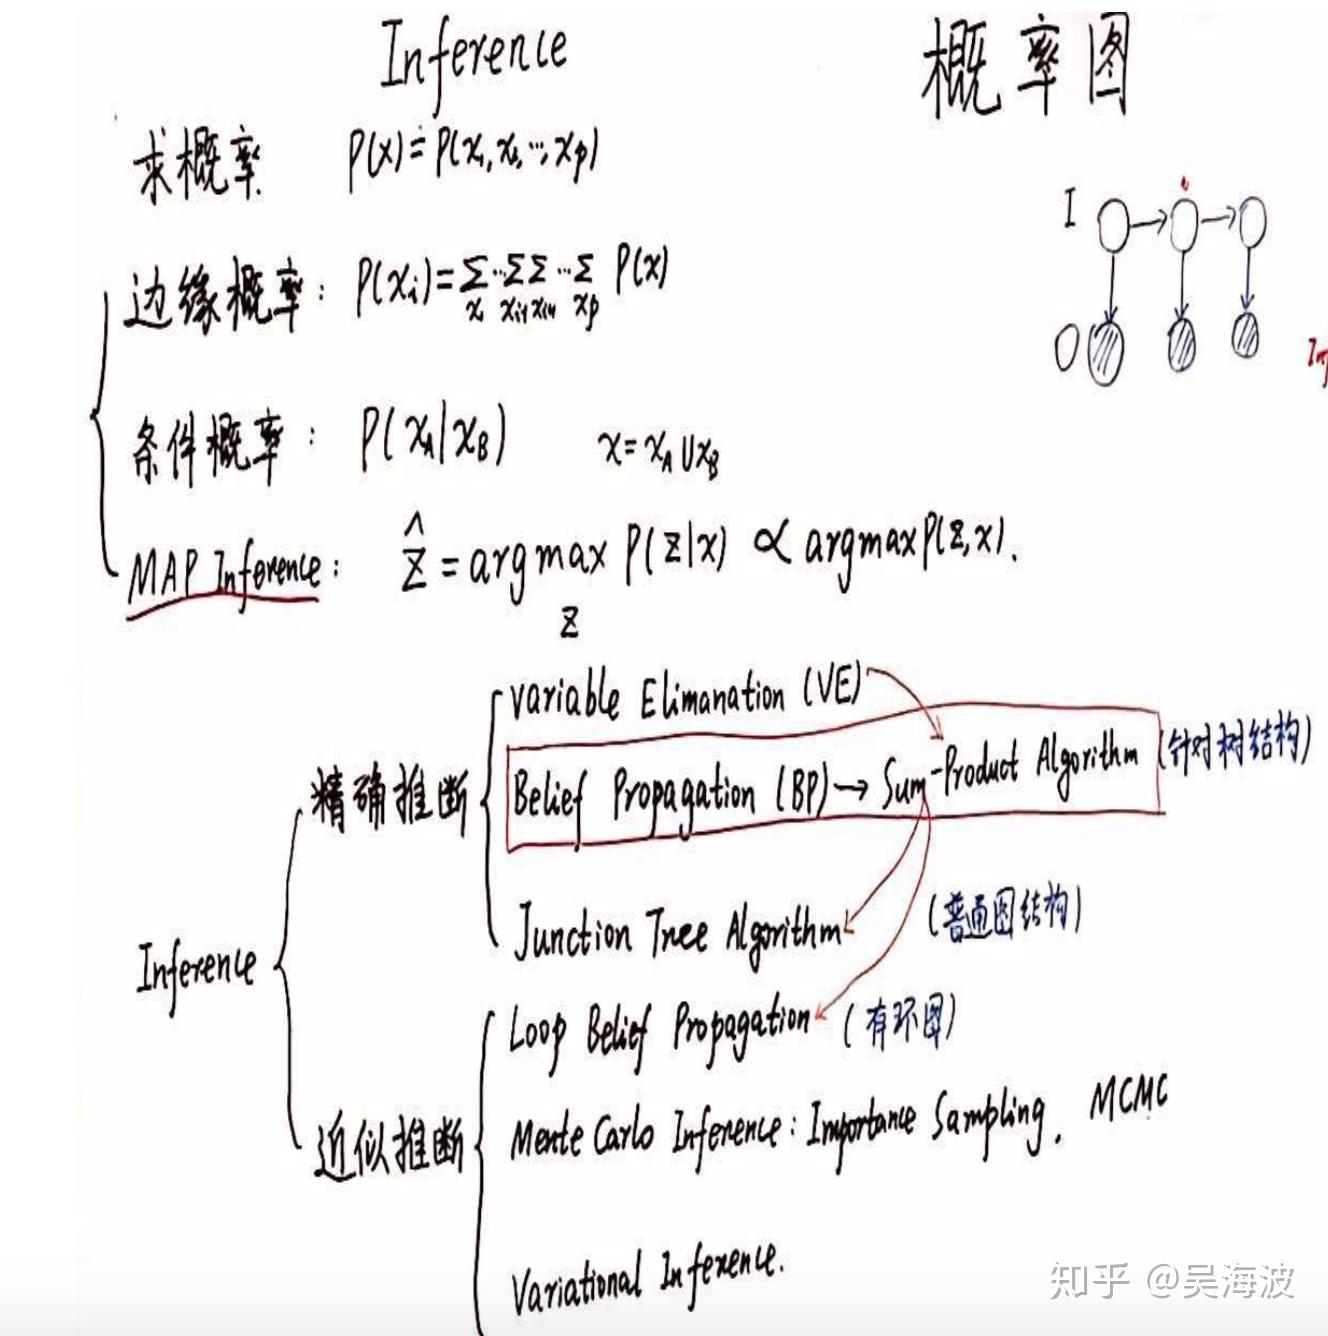 Inference
概率图
求概率 P(x)=P(x₁,x₂,…,xp)
边缘概率: P(xᵢ)=Σx₁…Σxᵢ₋₁Σxᵢ₊₁…Σxp P(x)
条件概率: P(xA|xB) x=xA∪xB
MAP Inference: Ẑ=argmax P(Z|x) ∝ argmaxP(Z,x).
Z
I
O
Inf
Variable Elimanation (VE)
精确推断
Belief Propagation (BP)→Sum-Product Algorithm (针对树结构)
Junction Tree Algorithm (普通图结构)
Inference
Loop Belief Propagation (有环图)
近似推断
Mente Carlo Inference: Importance Sampling. MCMC
Variational Inference.
知乎 @吴海波